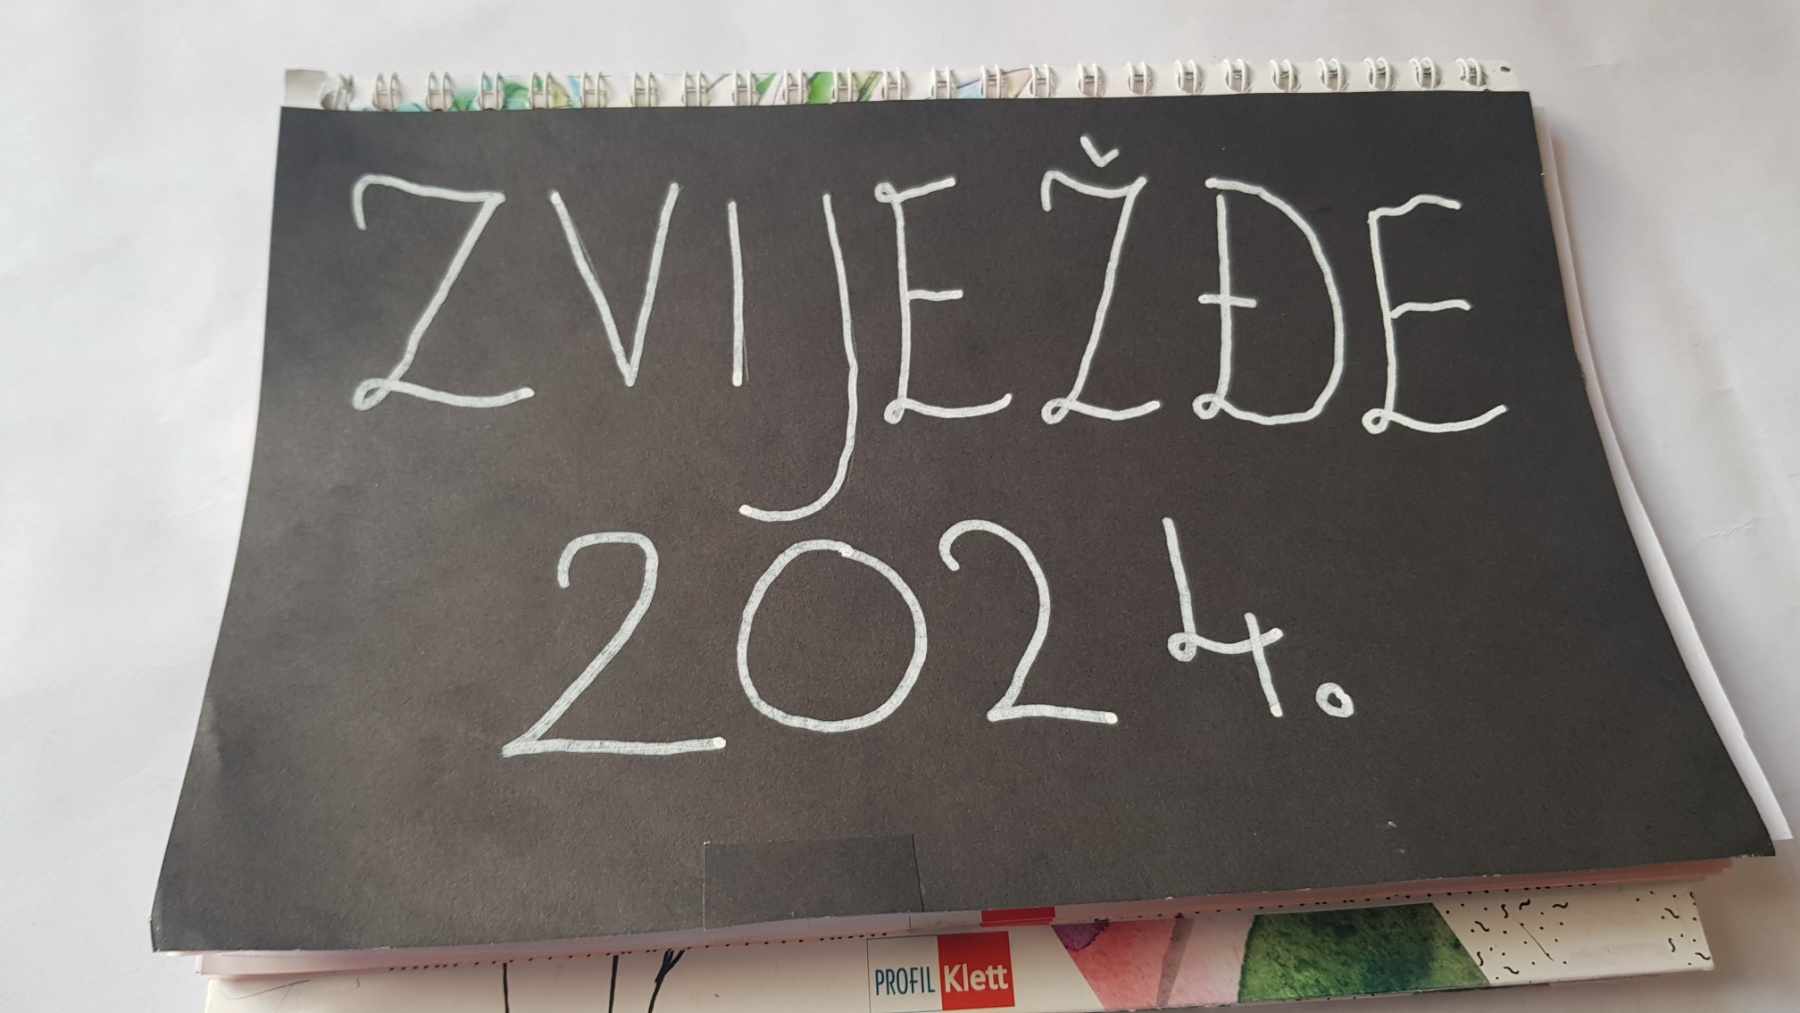 ZVIJEŽĐE
2024.
PROFIL Klett